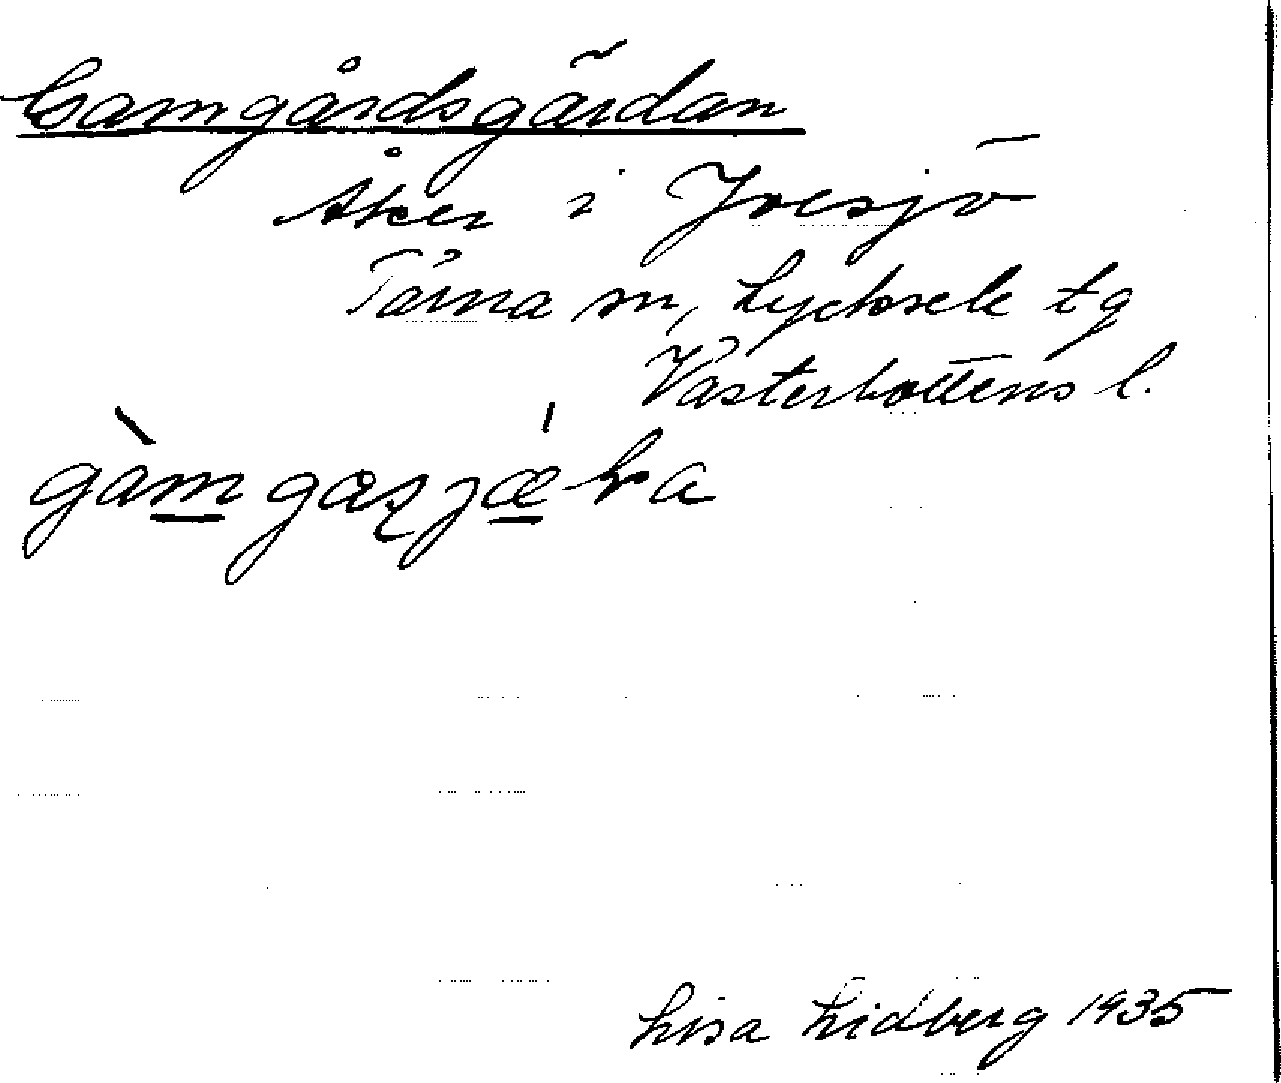 Gamgårdsgärdan
Åker i Joesjö
Tärna sn, Lycksele tg
Västerbottens l.
Lisa Lidberg 1935